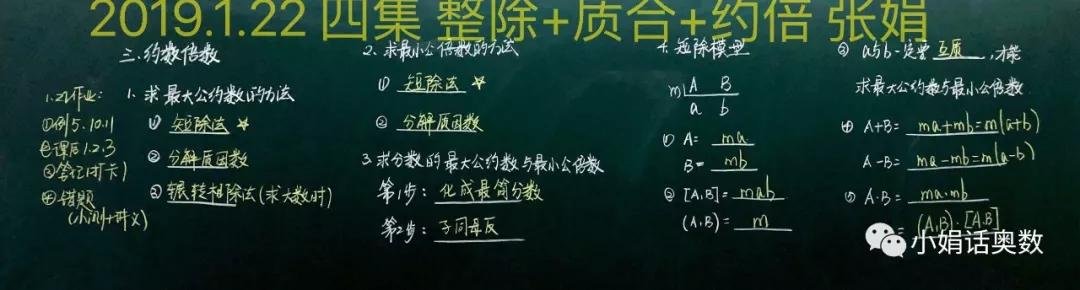 2019.1.22 四集 整除+质合+约倍 张娟
三.约数倍数
1.22作业:
①例5.10.11
②课后1.2.3
③笔记(打卡)
④错题
(小测+讲义)
1. 求最大公约数的方法
① 短除法 ☆
② 分解质因数
③ 辗转相除法(求大数时)
2. 求最小公倍数的方法
① 短除法 ☆
② 分解质因数
3. 求分数的最大公约数与最小公倍数
第1步: 化成最简分数
第2步: 子同母反
4. 短除模型
m A B
a b
① A= ma
B= mb
② [A,B]= mab
(A,B)= m
③ a与b一定要互质,才能
求最大公约数与最小公倍数
④ A+B= ma+mb=m(a+b)
A-B= ma-mb=m(a-b)
⑤ A·B= ma·mb
= (A,B)·[A,B]
小娟话奥数